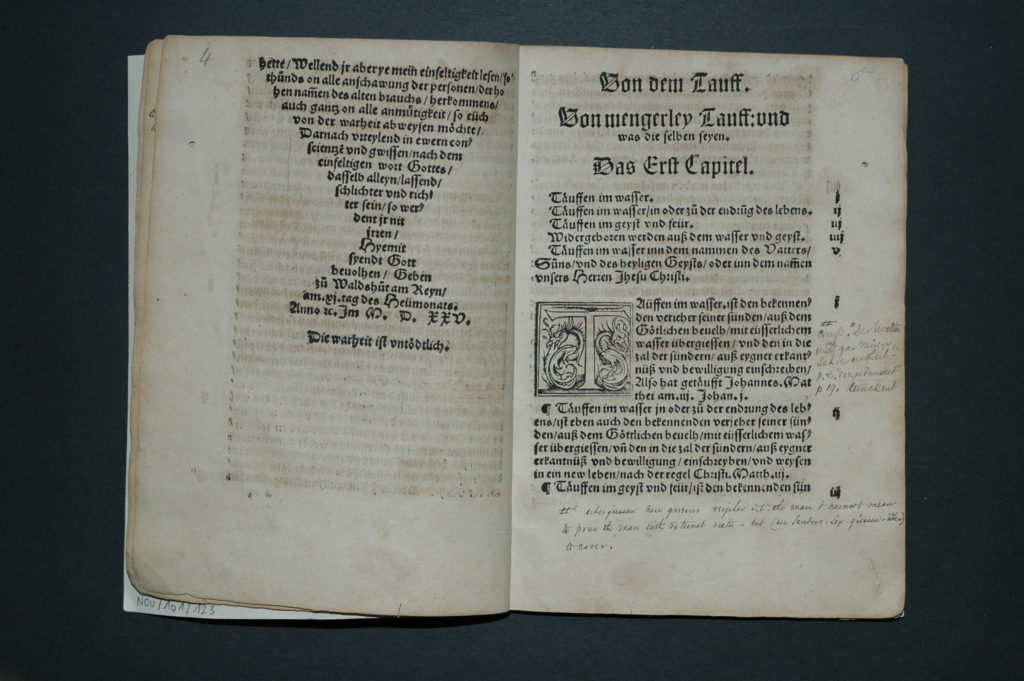 4
hette / Wellend jr aber ye mein einfeltigkeit lesen / so
thünds on alle anschawung der personen / der ho
hen nam̃en des alten brauchs / herkommens /
auch gantz on alle anmütigkeit / so eüch
von der warheit abweysen möchte /
Darnach vrteylend in ewern con⸗
scientzẽ vnd gwissen / nach dem
einfeltigen wort Gottes /
dasselb alleyn / lassend /
schlichter vnd rich⸗
ter sein / so wer⸗
dent jr nit
jrren /
Hyemit
syendt Gott
beuolhen / Geben
zů Waldshůt am Reyn /
am. xj. tag des Heümonats.
Anno ꝛc. Im M. D. XXV.
Die warheit ist vntödtlich.
NOU/101/123
Von dem Tauff.
Von mengerley Tauff: vnd
was die selben seyen.
Das Erst Capitel.
Täuffen im wasser. j
Täuffen im wasser / in oder zů der endrũg des lebens. ij
Täuffen im geyst vnd feür. iij
Widergeboren werden auß dem wasser vnd geyst. iiij
Täuffen im wasser inn dem nammen des Vatters / v
Süns / vnd des heyligen Geysts / oder inn dem nam̃en
vnsers Herren Jhesu Christi.
TAüffen im wasser. ist den bekennen⸗ j
den vericher seiner sünden / auß dem
Götlichen beuelh / mit eüsserlichem
wasser übergiessen / vnd den in die
zal der sündern / auß eygner erkant⸗
nüß vnd bewilligung einschreiben /
Also hat getäufft Johannes. Mat
thei am. iij. Johan. j.
¶ Täuffen im wasser jn oder zů der endrung des leb⸗ ij
ens / ist eben auch den bekennenden verjeher seiner sün⸗
den / auß dem Göttlichen beuelh / mit eüsserlichem was⸗
ser übergiessen / vñ den in die zal der sündern / auß eygner
erkantnüß vnd bewilligung / einschreyben / vnd weysen
in ein new leben / nach der regel Christi. Matth. iij.
¶ Täuffen im geyst vnd feür / ist den bekennenden sün iij
the man & cannot mean
to pour the man with external water - but
to cover.